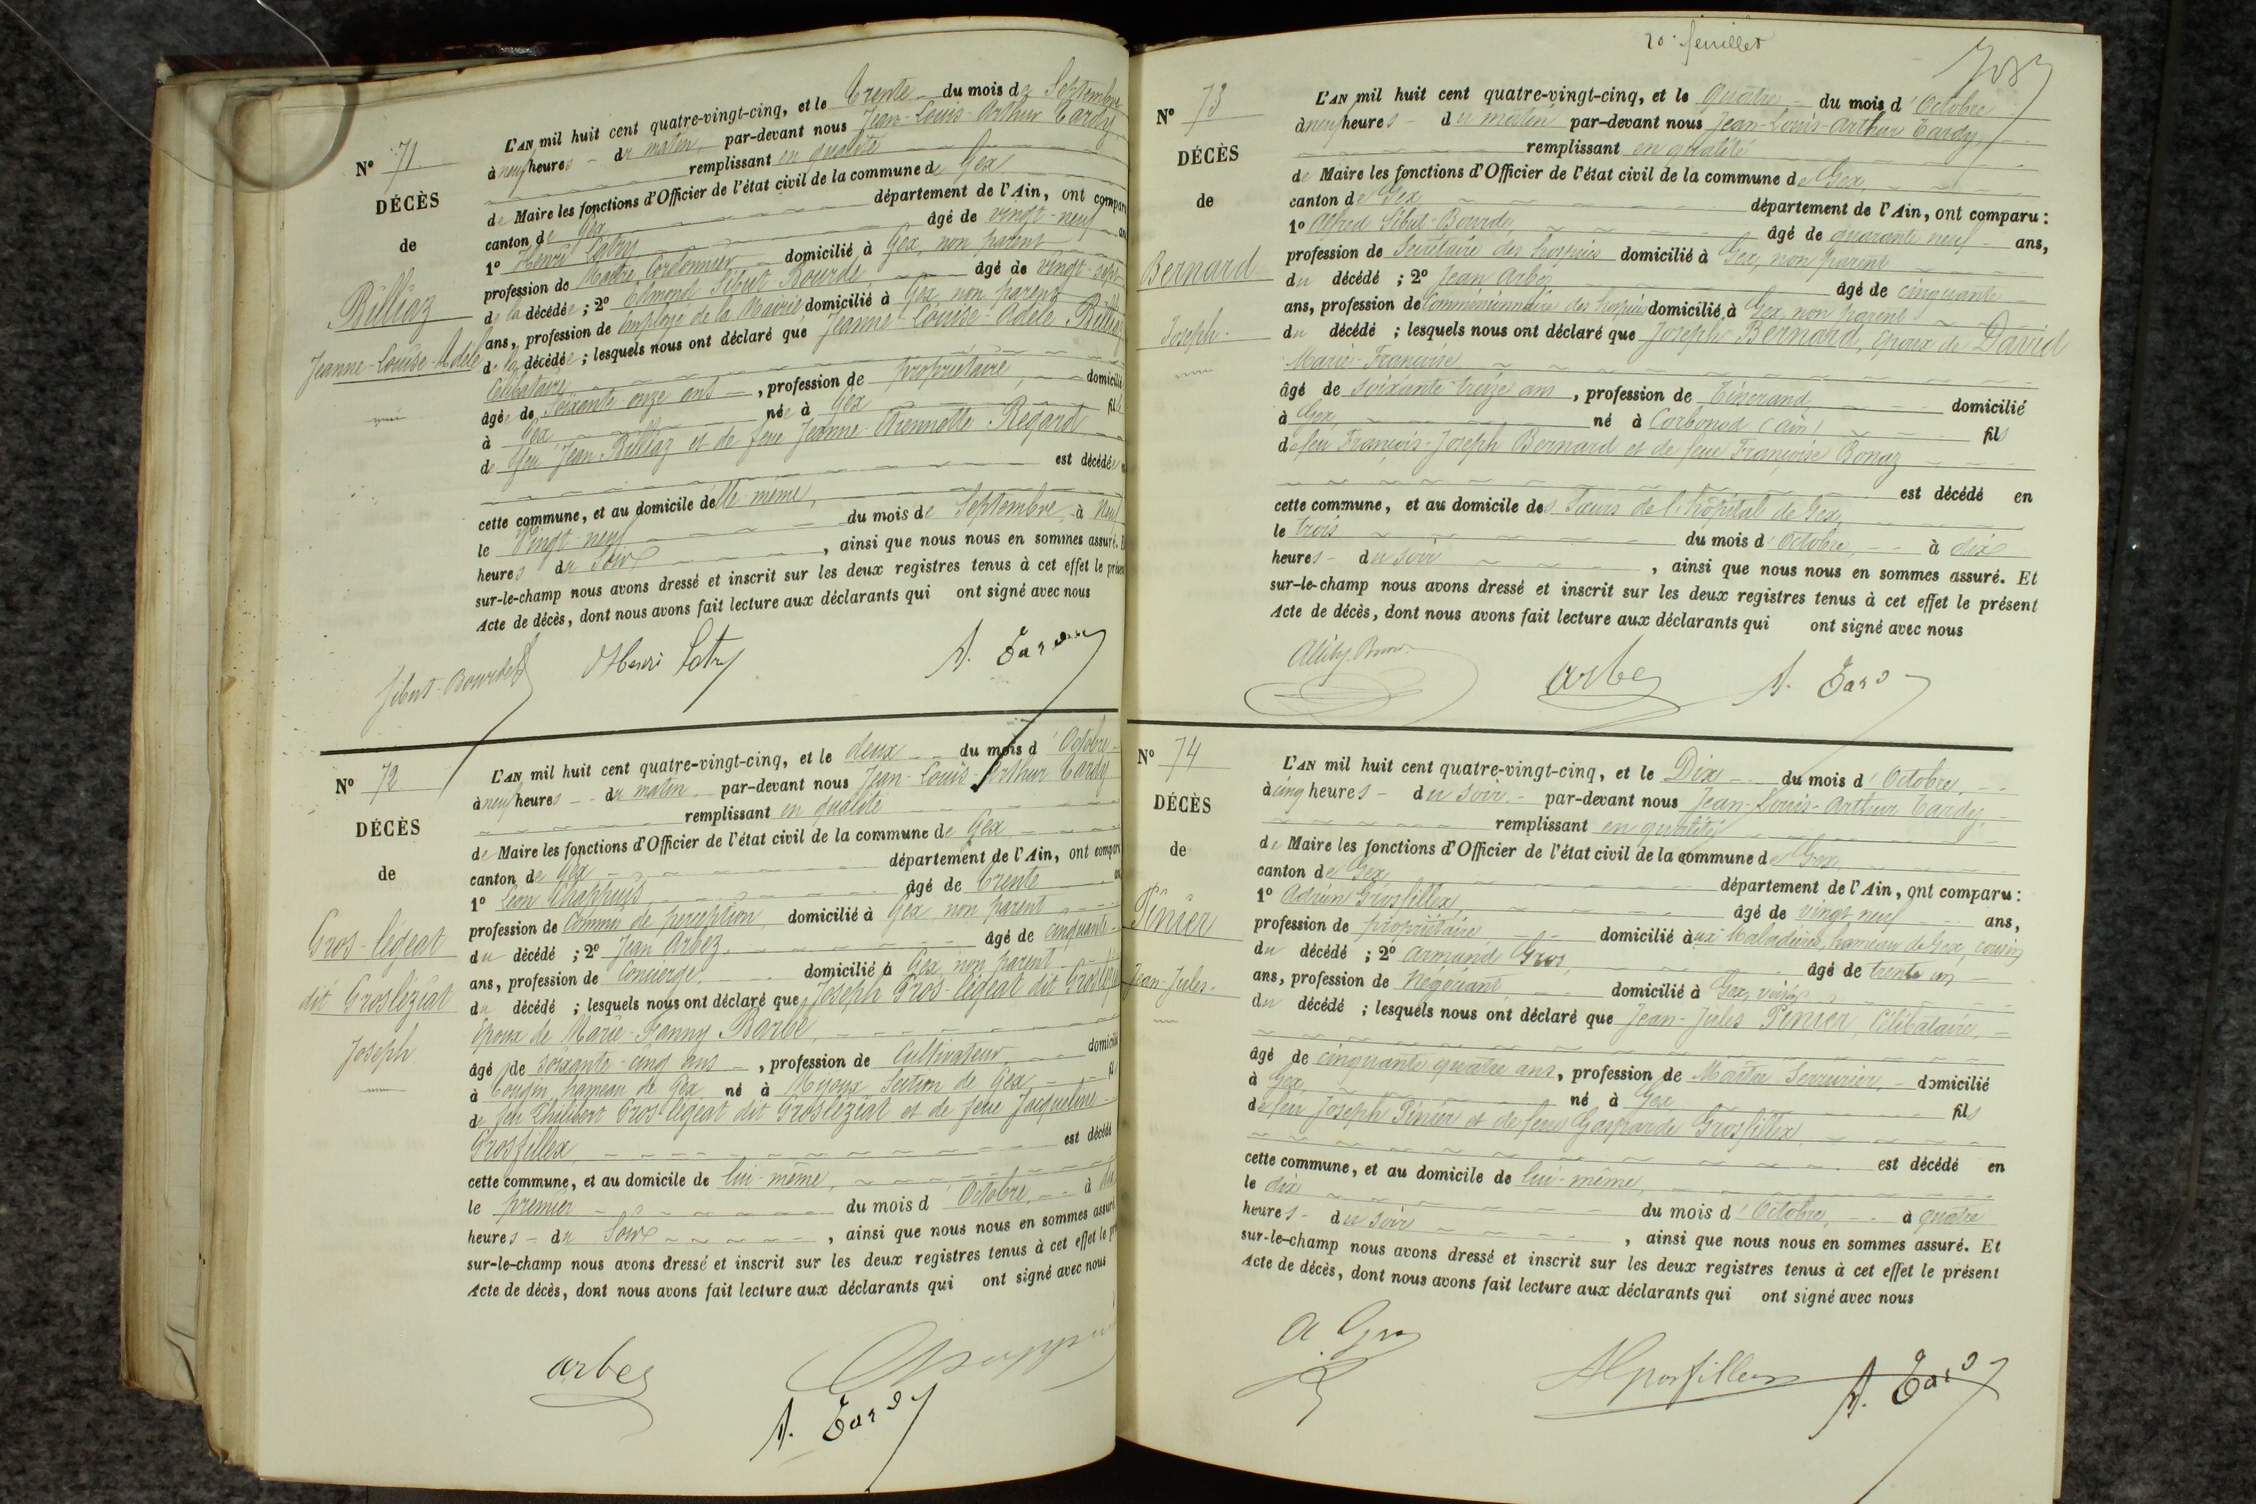 N° 71
DÉCÈS
de
Billiaz
Jeanne-Louise-Adèle
L'AN mil huit cent quatre-vingt-cinq, et le Trente du mois de Septembre
à neuf heures du matin par-devant nous Jean-Louis-Arthur Tardy
remplissant en qualité
de Maire les fonctions d'Officier de l'état civil de la commune de Gex
canton de Gex département de l'Ain, ont compar
1° Henri Latry âgé de vingt-neuf
profession de Maître Cordonnier domicilié à Gex, non parent
de la décédée ; 2° Edmond Sibut Bourde âgé de vingt-sept
ans, profession de employé de la Mairie domicilié à Gex, non parent
de la décédée ; lesquels nous ont déclaré que Jeanne-Louise-Adèle Billiaz
Célibataire
âgée de soixante-onze ans, profession de propriétaire, domicilié
à Gex née à Gex fille
de feu Jean Billiaz et de feue Jeanne Etiennette Regard
est décédée
cette commune, et au domicile d'elle même,
le Vingt neuf du mois de Septembre à Neuf
heures du Soir, ainsi que nous nous en sommes assuré.
sur-le-champ nous avons dressé et inscrit sur les deux registres tenus à cet effet le présen
Acte de décès, dont nous avons fait lecture aux déclarants qui ont signé avec nous
Sibut-Bourde Henri Latry A. Tardy
N° 72
DÉCÈS
de
Gros-legeat
dit Grosleziat
Joseph
L'AN mil huit cent quatre-vingt-cinq, et le deux du mois d'Octobre
à neuf heures du matin par-devant nous Jean-Louis-Arthur Tardy
remplissant en qualité
de Maire les fonctions d'Officier de l'état civil de la commune de Gex
canton de Gex département de l'Ain, ont compar
1° Léon Chappuis âgé de Trente
profession de Commis de perception domicilié à Gex, non parent
du décédé ; 2° Jean Arbez, âgé de cinquante
ans, profession de Concierge, domicilié à Gex, non parent
du décédé ; lesquels nous ont déclaré que Joseph Gros-legeat dit Grosleziat
époux de Marie-Fanny Barbe,
âgé de soixante-cinq ans, profession de Cultivateur, domicilié
à Tougin, hameau de Gex né à Mijoux Section de Gex, fils
de feu Philibert Gros-legeat dit Grosleziat et de feue Jacqueline
Grosfillex, est décédé
cette commune, et au domicile de lui-même,
le premier du mois d'Octobre, à dix
heures du Soir, ainsi que nous nous en sommes assuré
sur-le-champ nous avons dressé et inscrit sur les deux registres tenus à cet effet le pré
Acte de décès, dont nous avons fait lecture aux déclarants qui ont signé avec nous
Arbez Chappuis
A. Tardy
20e feuillet
N° 73
DÉCÈS
de
Bernard
Joseph
L'AN mil huit cent quatre-vingt-cinq, et le Quatre du mois d'Octobre
à neuf heures du matin par-devant nous Jean-Louis-Arthur Tardy,
remplissant en qualité
de Maire les fonctions d'Officier de l'état civil de la commune de Gex
canton de Gex département de l'Ain, ont comparu :
1° Alfred Sibut-Bourde, âgé de quarante neuf ans,
profession de Secrétaire des hospices domicilié à Gex, non parent
du décédé ; 2° Jean Arbez âgé de cinquante
ans, profession de Commissionnaire des hospices domicilié à Gex, non parent
du décédé ; lesquels nous ont déclaré que Joseph Bernard, époux de David
Marie-Françoise,
âgé de soixante-treize ans, profession de Tisserand, domicilié
à Gex, né à Corbonod (ain) fils
de feu François-Joseph Bernard et de feue Françoise Bonaz
est décédé en
cette commune, et au domicile des Sœurs de l'hôpital de Gex,
le trois du mois d'Octobre, à dix
heures du soir, ainsi que nous nous en sommes assuré. Et
sur-le-champ nous avons dressé et inscrit sur les deux registres tenus à cet effet le présent
Acte de décès, dont nous avons fait lecture aux déclarants qui ont signé avec nous
Arbez A. Tardy
N° 74
DÉCÈS
de
Pinier
Jean-Jules
L'AN mil huit cent quatre-vingt-cinq, et le Dix du mois d'Octobre,
à cinq heures du soir par-devant nous Jean-Louis-Arthur Tardy,
remplissant en qualité
de Maire les fonctions d'Officier de l'état civil de la commune de Gex,
canton de Gex département de l'Ain, ont comparu :
1° Adrien Grosfillex âgé de vingt neuf ans,
profession de propriétaire domicilié aux Maladières, hameau de Gex, cousin
du décédé ; 2° Armand Gros, âgé de trente un
ans, profession de Négociant, domicilié à Gex, voisin
du décédé ; lesquels nous ont déclaré que Jean-Jules Pinier, Célibataire,
âgé de cinquante quatre ans, profession de Maître Serrurier, domicilié
à Gex, né à Gex fils
de feu Joseph Pinier et de feue Gasparde Grosfillex,
est décédé en
cette commune, et au domicile de lui-même,
le dix du mois d'Octobre, à quatre
heures du soir, ainsi que nous nous en sommes assuré. Et
sur-le-champ nous avons dressé et inscrit sur les deux registres tenus à cet effet le présent
Acte de décès, dont nous avons fait lecture aux déclarants qui ont signé avec nous
A. Gros AGrosfillex A. Tardy